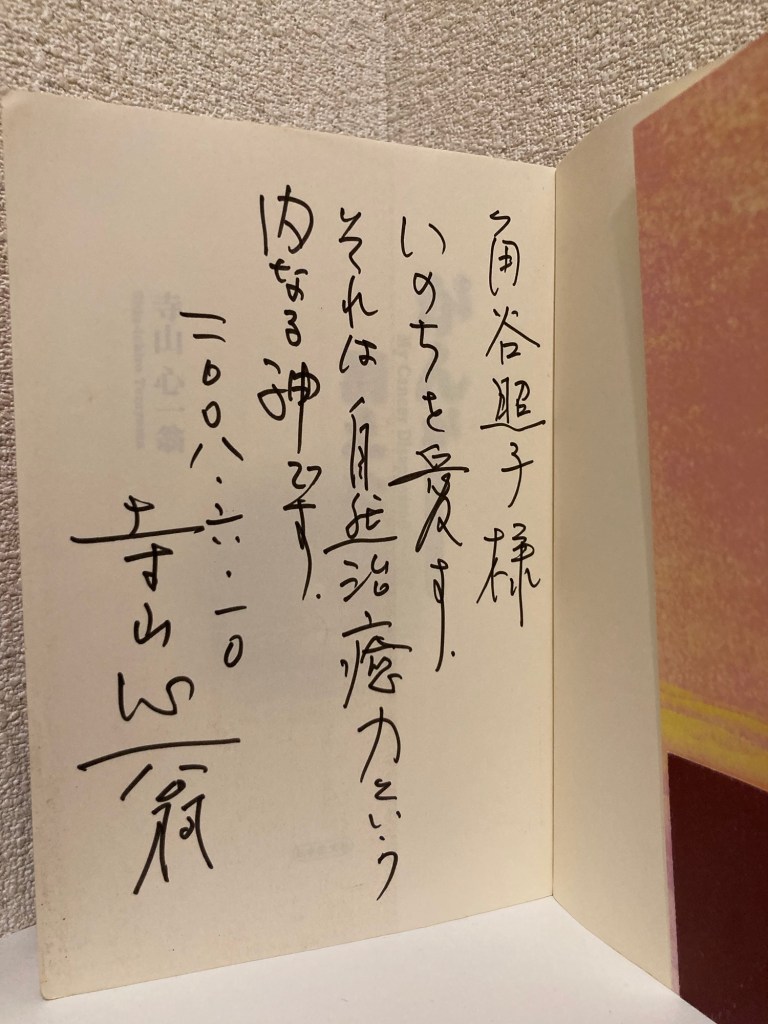 角谷照子様
いのちを愛す.
それは自然治癒力という
内なる神です.
二〇〇八.六.一〇
寺山心一翁